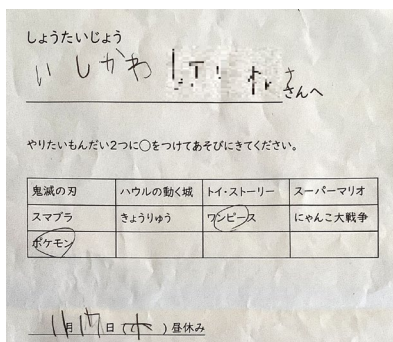 しょうたいじょう
いしかわ
さんへ
やりたいもんだい2つに○をつけてあそびにきてください。
鬼滅の刃 ハウルの動く城 トイ・ストーリー スーパーマリオ
スマブラ きょうりゅう ワンピース にゃんこ大戦争
ポケモン
11月17日(水)昼休み